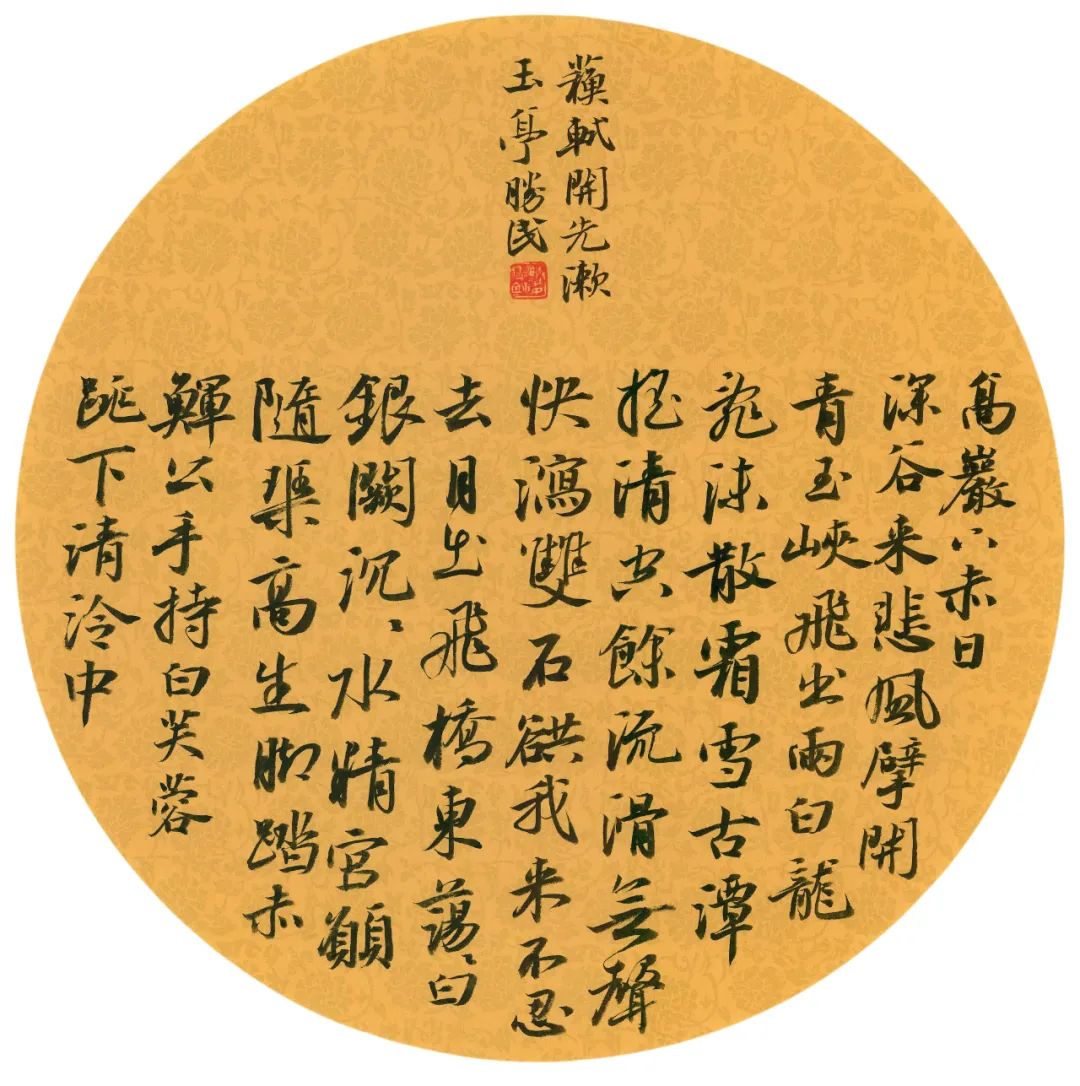 高巖下赤日
深谷来悲風擘開
青玉峽飛出兩白龍
亂沫散霜雪古潭
搖清空餘流滑無聲
快瀉雙石谼我来不忍
去月出飛橋東蕩々白
銀闕沉々水精宮願
隨琹高生脚踏赤
鯶公手持白芙蓉
跳下清泠中
蘇軾開先漱
玉亭勝民